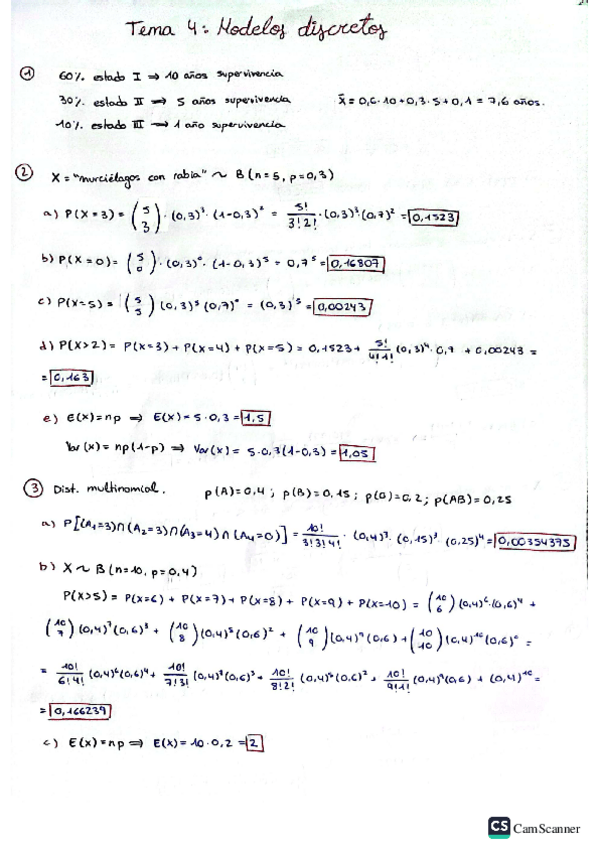 Tema 4: Modelos discretos
① 60% estado I ⇒ 10 años supervivencia
30% estado II ⇒ 5 años supervivencia x̄ = 0,6·10+0,3·5+0,1 = 7,6 años.
10% estado III ⇒ 1 año supervivencia
② X = "murciélagos con rabia" ~ B(n=5, p=0,3)
a) P(X=3) = (5 3)·(0,3)³·(1-0,3)² = 5!/3!2!·(0,3)³·(0,7)² = 0,1523
b) P(X=0) = (5 0)·(0,3)⁰·(1-0,3)⁵ = 0,7⁵ = 0,16807
c) P(X=5) = (5 5)(0,3)⁵(0,7)⁰ = (0,3)⁵ = 0,00243
d) P(X>2) = P(X=3) + P(X=4) + P(X=5) = 0,1523 + 5!/4!1! (0,3)⁴·0,7 + 0,00243 =
= 0,163
e) E(X)=np ⇒ E(X) = 5·0,3 = 1,5
Var(X) = np(1-p) ⇒ Var(x) = 5·0,3(1-0,3) = 1,05
③ Dist. multinomial. p(A)=0,4; p(B)=0,15; p(O)=0,2; p(AB)=0,25
a) P[(A₁=3)∩(A₂=3)∩(A₃=4)∩(A₄=0)] = 10!/3!3!4!·(0,4)³·(0,15)³·(0,25)⁴ = 0,00354375
b) X ~ B(n=10, p=0,4)
P(X>5) = P(X=6) + P(X=7) + P(X=8) + P(X=9) + P(X=10) = (10 6)(0,4)⁶·(0,6)⁴ +
(10 7)(0,4)⁷(0,6)³ + (10 8)(0,4)⁸(0,6)² + (10 9)(0,4)⁹(0,6) + (10 10)(0,4)¹⁰(0,6)⁰ =
= 10!/6!4! (0,4)⁶(0,6)⁴ + 10!/7!3! (0,4)⁷(0,6)³ + 10!/8!2! (0,4)⁸(0,6)² + 10!/9!1! (0,4)⁹(0,6) + (0,4)¹⁰ =
= 0,166239
c) E(X)=np ⇒ E(X)=10·0,2 = 2
CS CamScanner